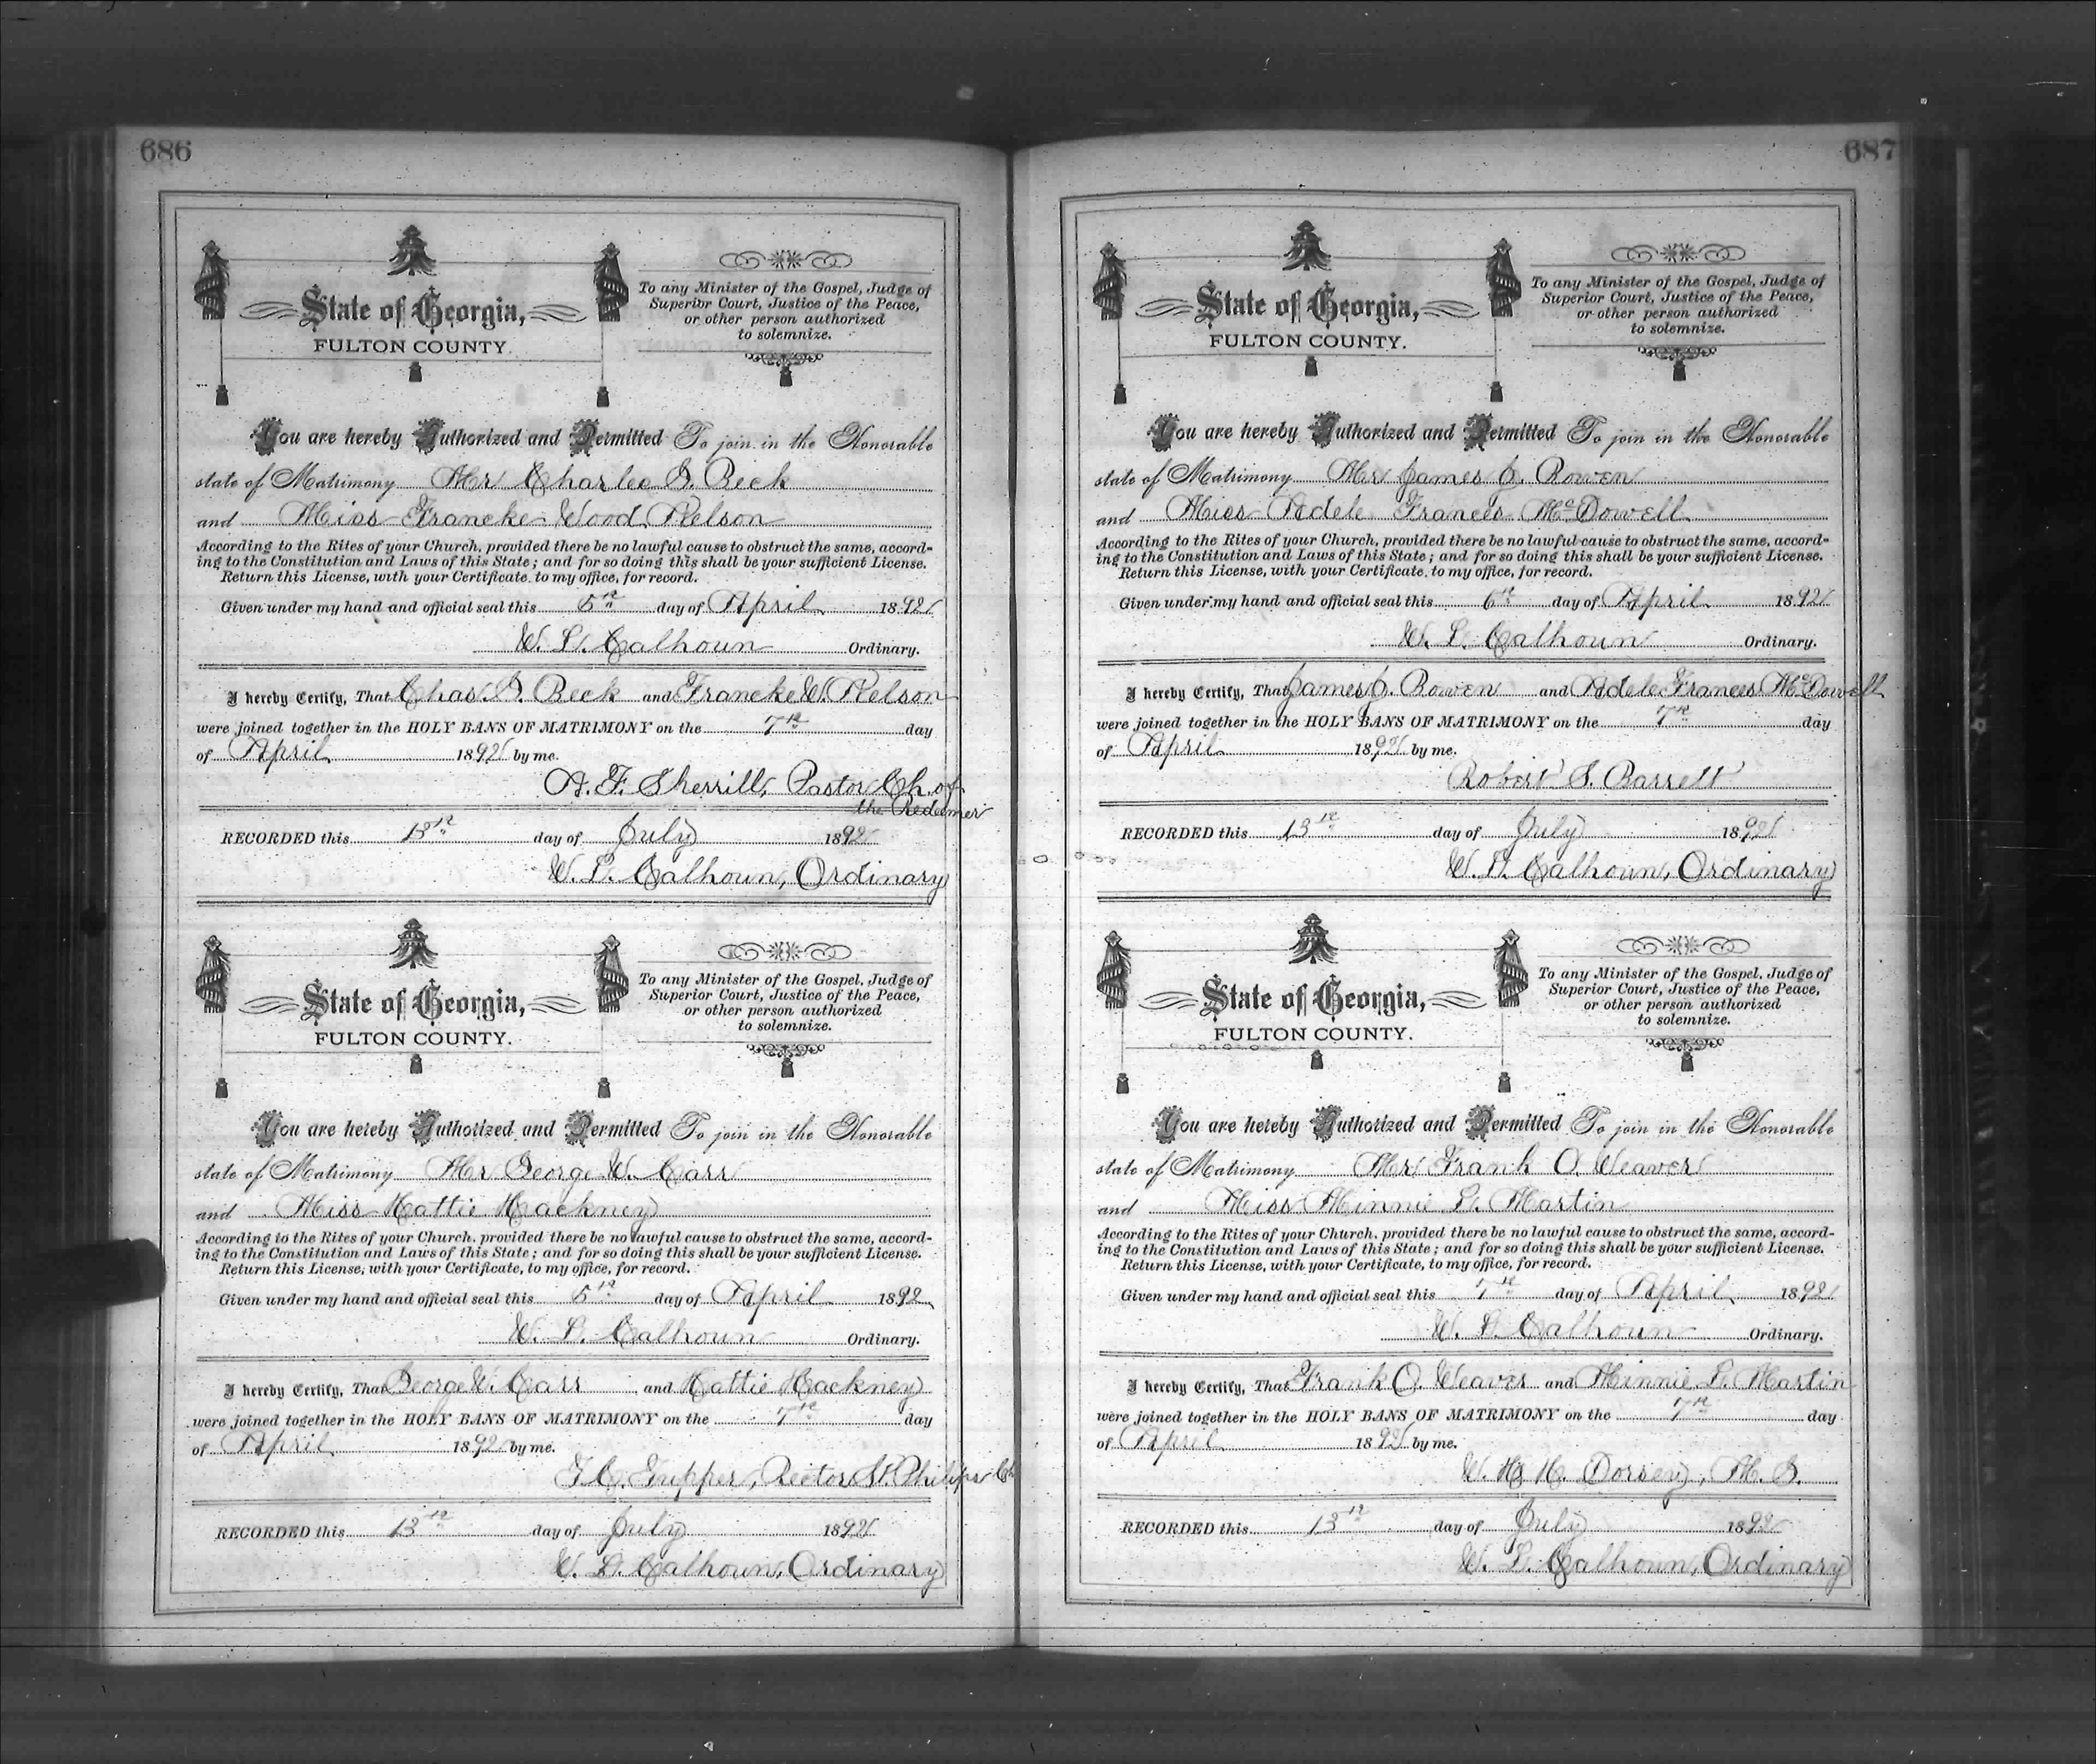 686
State of Georgia,
FULTON COUNTY.
To any Minister of the Gospel, Judge of
Superior Court, Justice of the Peace,
or other person authorized
to solemnize.
You are hereby Authorized and Permitted To join in the Honorable
state of Matrimony Mr Charles G. Beck
and Miss Francke Wood Nelson
According to the Rites of your Church, provided there be no lawful cause to obstruct the same, accord-
ing to the Constitution and Laws of this State; and for so doing this shall be your sufficient License.
Return this License, with your Certificate, to my office, for record.
Given under my hand and official seal this 5th day of April 1892
W. L. Calhoun Ordinary.
I hereby Certify, That Chas. G. Beck and Francke W. Nelson
were joined together in the HOLY BANS OF MATRIMONY on the 7th day
of April 1892 by me.
A. F. Sherrill, Pastor Ch. of
the Redeemer
RECORDED this 13th day of July 1892
W. L. Calhoun, Ordinary
State of Georgia,
FULTON COUNTY.
To any Minister of the Gospel, Judge of
Superior Court, Justice of the Peace,
or other person authorized
to solemnize.
You are hereby Authorized and Permitted To join in the Honorable
state of Matrimony Mr George W. Carr
and Miss Hattie Hackney
According to the Rites of your Church, provided there be no lawful cause to obstruct the same, accord-
ing to the Constitution and Laws of this State; and for so doing this shall be your sufficient License.
Return this License, with your Certificate, to my office, for record.
Given under my hand and official seal this 5th day of April 1892
W. L. Calhoun Ordinary.
I hereby Certify, That George W. Carr and Hattie Hackney
were joined together in the HOLY BANS OF MATRIMONY on the 7th day
of April 1892 by me.
T. C. Tupper, Rector St. Philips Ch
RECORDED this 13th day of July 1892
W. L. Calhoun, Ordinary
687
State of Georgia,
FULTON COUNTY.
To any Minister of the Gospel, Judge of
Superior Court, Justice of the Peace,
or other person authorized
to solemnize.
You are hereby Authorized and Permitted To join in the Honorable
state of Matrimony Mr James J. Bowen
and Miss Adele Frances McDowell
According to the Rites of your Church, provided there be no lawful cause to obstruct the same, accord-
ing to the Constitution and Laws of this State; and for so doing this shall be your sufficient License.
Return this License, with your Certificate, to my office, for record.
Given under my hand and official seal this 6th day of April 1892
W. L. Calhoun Ordinary.
I hereby Certify, That James J. Bowen and Adele Frances McDowell
were joined together in the HOLY BANS OF MATRIMONY on the 7th day
of April 1892 by me.
Robert S. Barrett
RECORDED this 13th day of July 1892
W. L. Calhoun, Ordinary
State of Georgia,
FULTON COUNTY.
To any Minister of the Gospel, Judge of
Superior Court, Justice of the Peace,
or other person authorized
to solemnize.
You are hereby Authorized and Permitted To join in the Honorable
state of Matrimony Mr Frank O. Weaver
and Miss Minnie L. Martin
According to the Rites of your Church, provided there be no lawful cause to obstruct the same, accord-
ing to the Constitution and Laws of this State; and for so doing this shall be your sufficient License.
Return this License, with your Certificate, to my office, for record.
Given under my hand and official seal this 7th day of April 1892
W. L. Calhoun Ordinary.
I hereby Certify, That Frank O. Weaver and Minnie L. Martin
were joined together in the HOLY BANS OF MATRIMONY on the 7th day
of April 1892 by me.
W. H. H. Dorsey, M. G.
RECORDED this 13th day of July 1892
W. L. Calhoun, Ordinary